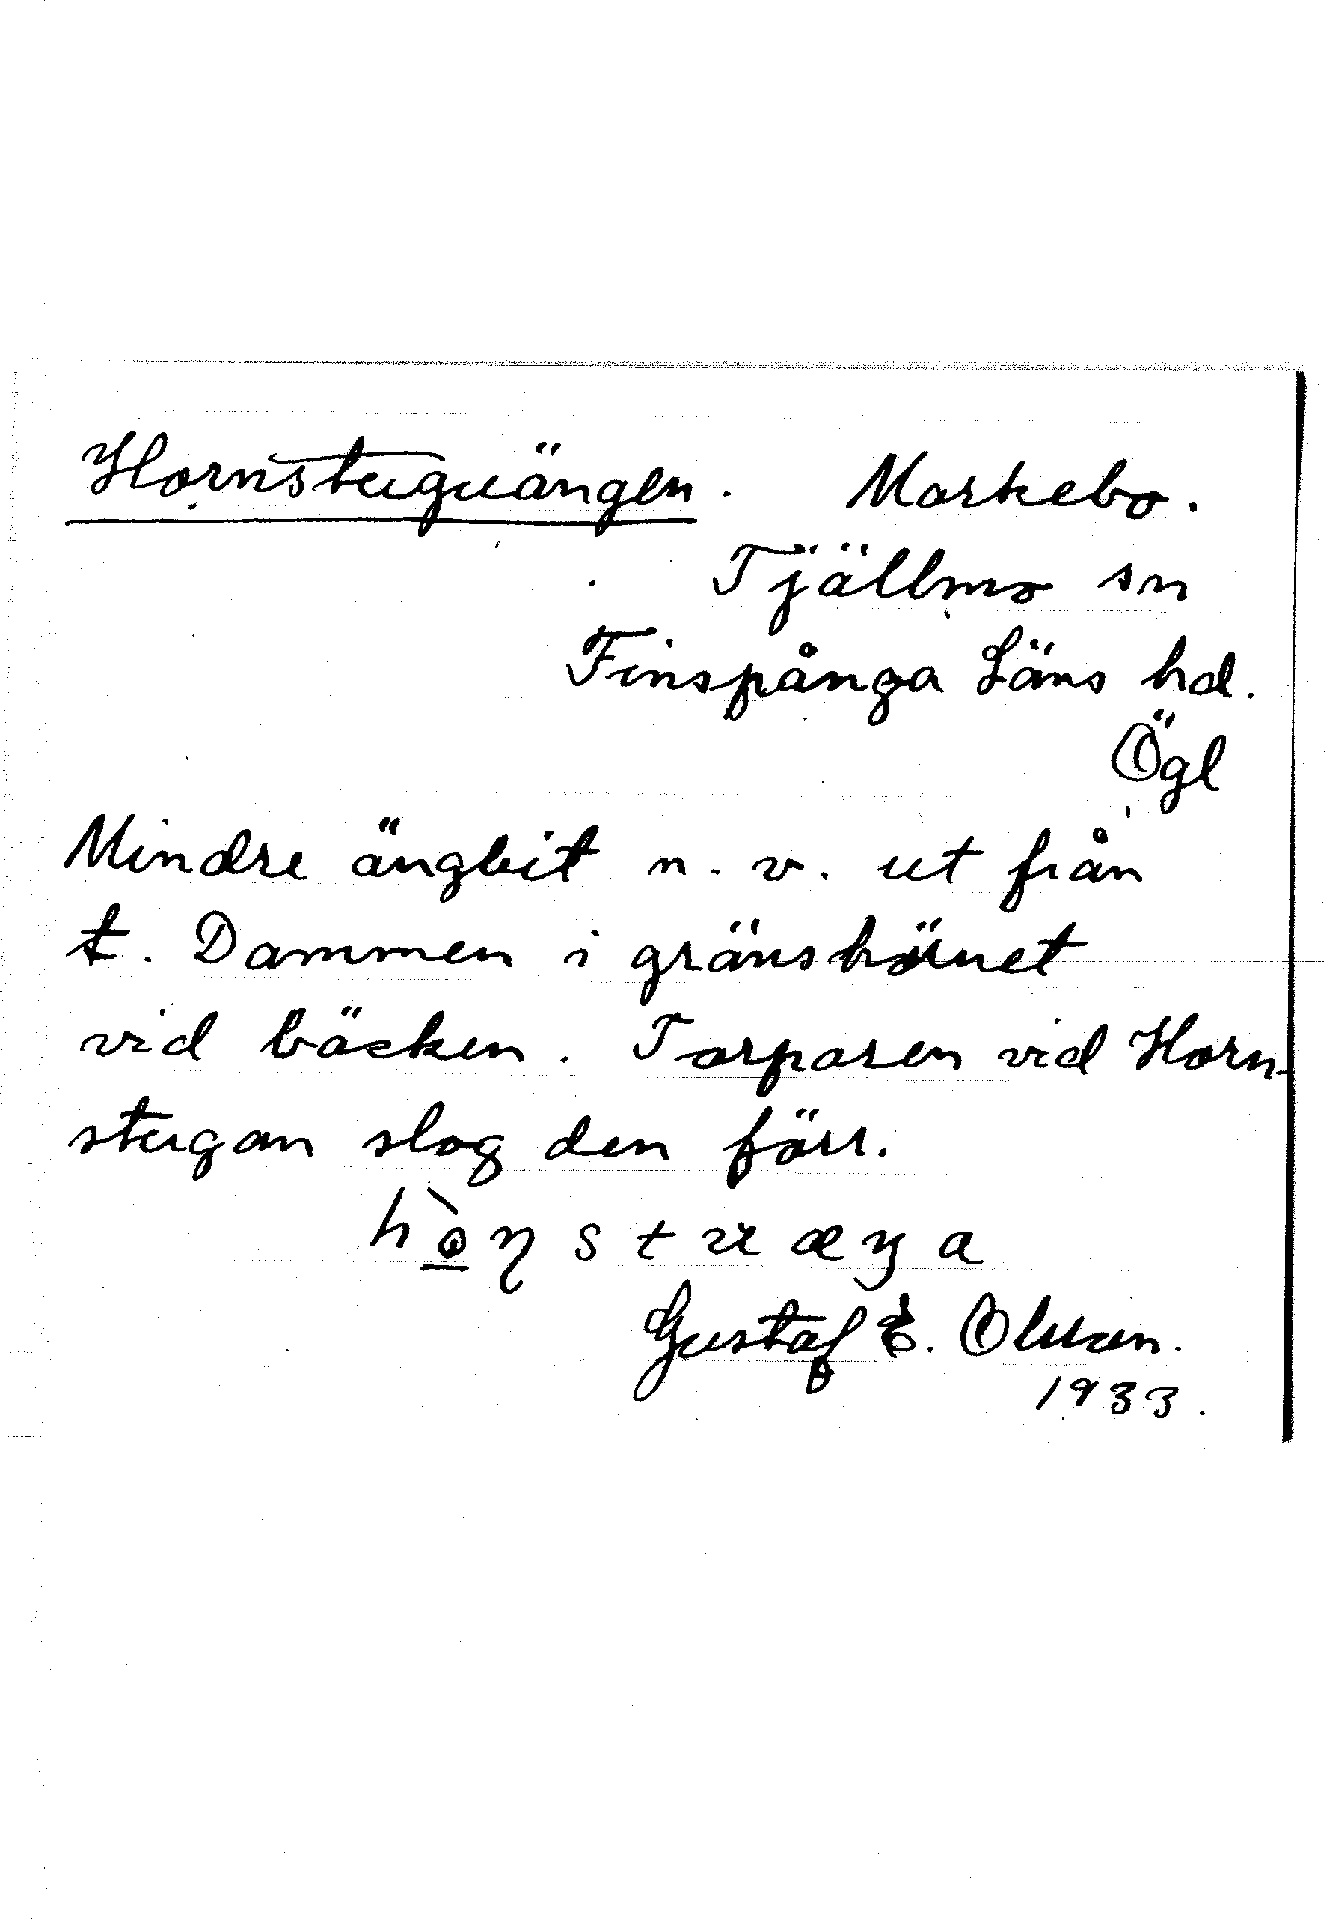 Hornstuguängen. Morkebo.
Tjällmo sn
Finspånga Läns hd.
Ögl
Mindre ängbit n. v. ut från
t. Dammen i gränshörnet
vid bäcken. Torparen vid Horn-
stugan slog den förr.
Gustaf E. Olsson.
1933.